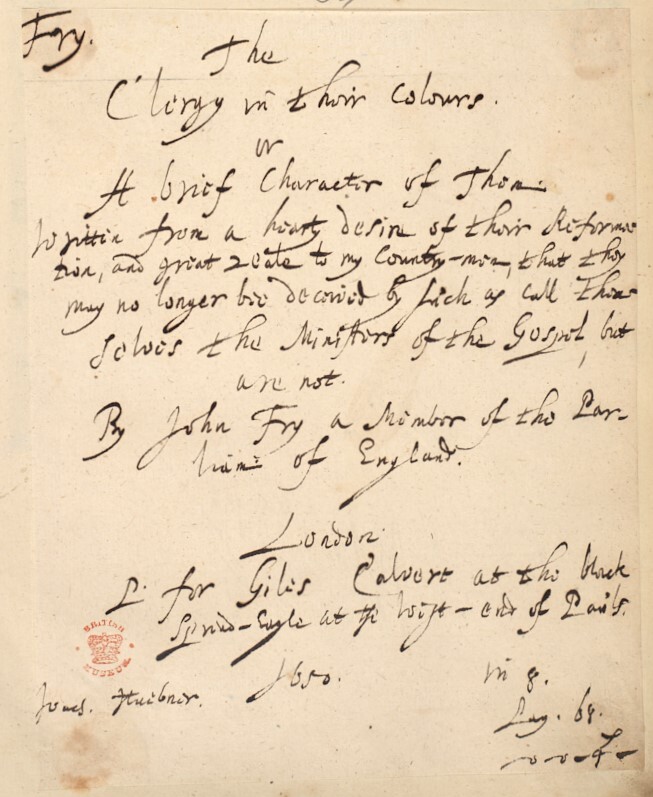 Fry.
The
Clergy in their Colours.
or
A brief Character of Them
written from a hearty desire of their Reforma
tion, and great zeale to my Country-men, that they
may no longer bee deceived by such as call them
selves the Ministers of the Gospel, but
are not.
By John Fry a Member of the Par-
liam: of England.
London
P. for Giles Calvert at the black
Spread-Eagle at the West-end of Pauls.
1650. in 8.
BRITISH
MUSEUM
Huebner. Pag. 68.